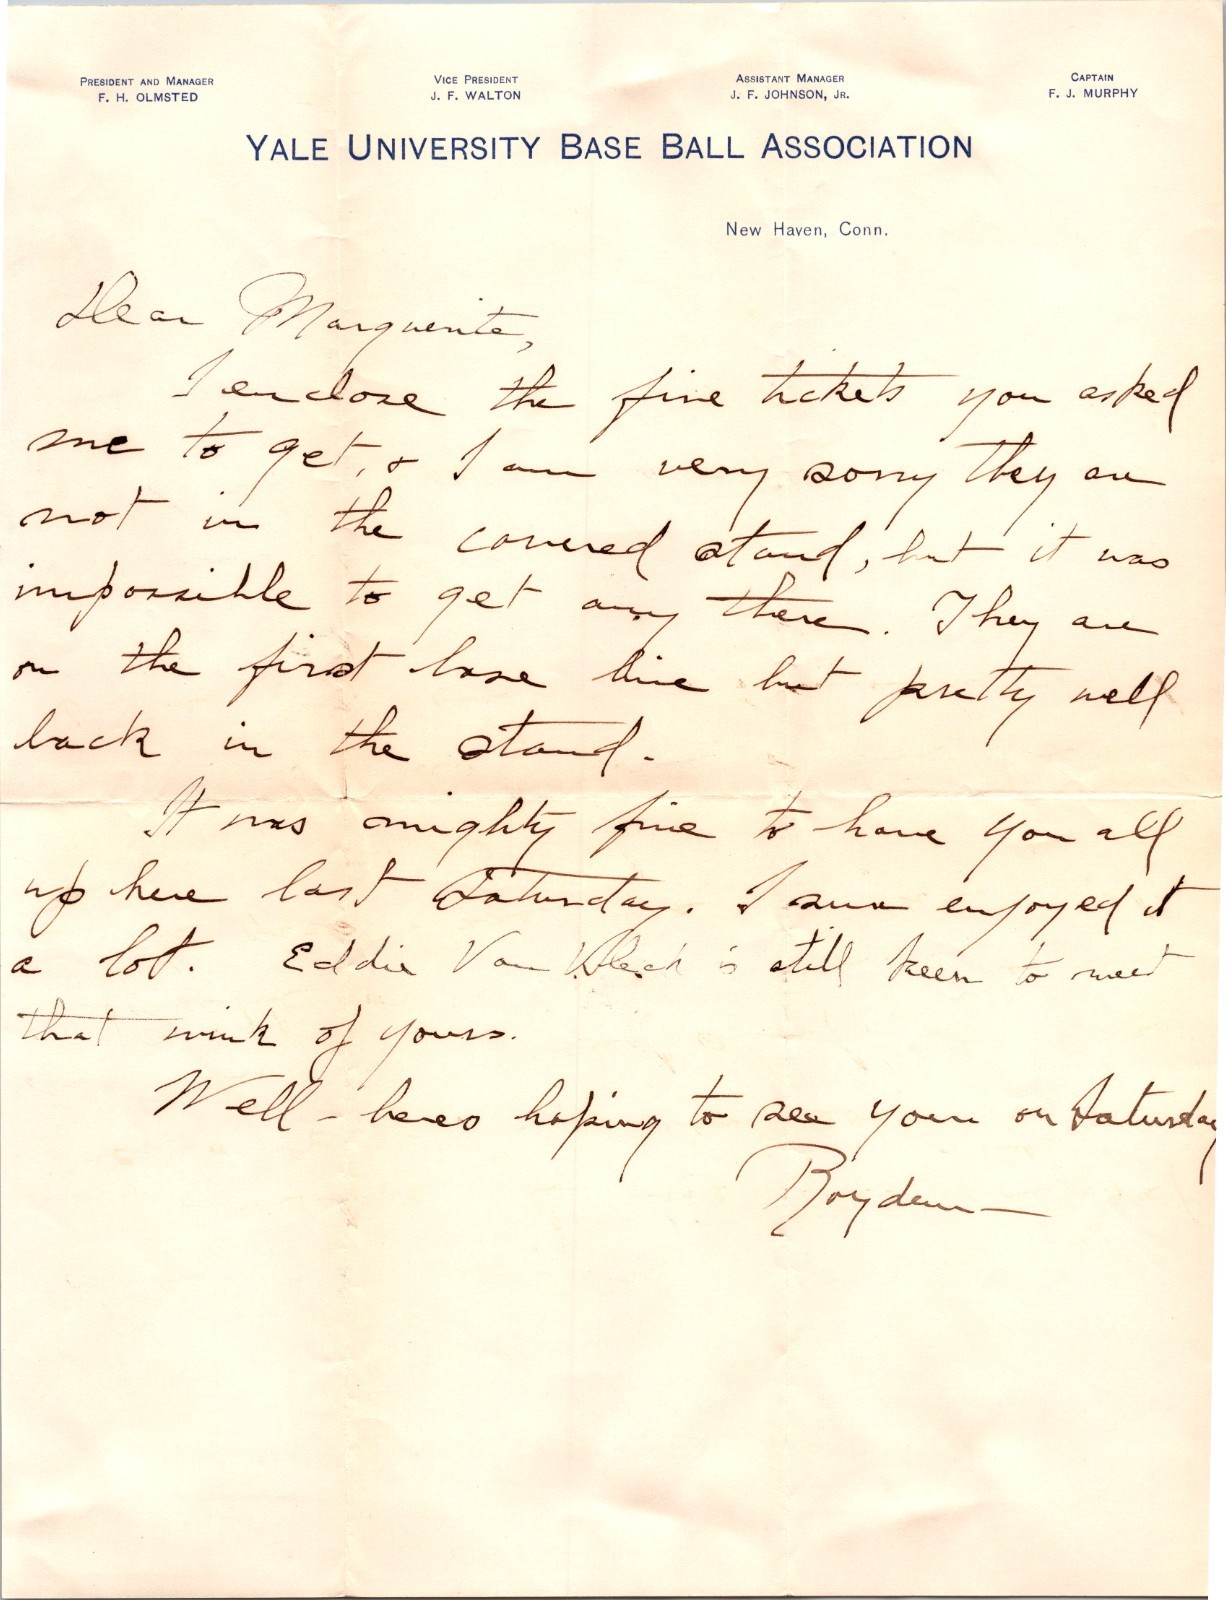 PRESIDENT AND MANAGER
F. H. OLMSTED
VICE PRESIDENT
J. F. WALTON
ASSISTANT MANAGER
J. F. JOHNSON, JR.
CAPTAIN
F. J. MURPHY
YALE UNIVERSITY BASE BALL ASSOCIATION
New Haven, Conn.
Dear Marguerite,
I enclose the five tickets you asked
me to get, & I am very sorry they are
not in the covered stand, but it was
impossible to get any there. They are
on the first base line but pretty well
back in the stand.
It was mighty fine to have you all
up here last Saturday. I sure enjoyed it
a lot. Eddie Van Vleck is still keen to meet
that wink of yours.
Well - heres hoping to see youu on Saturday
Boyden